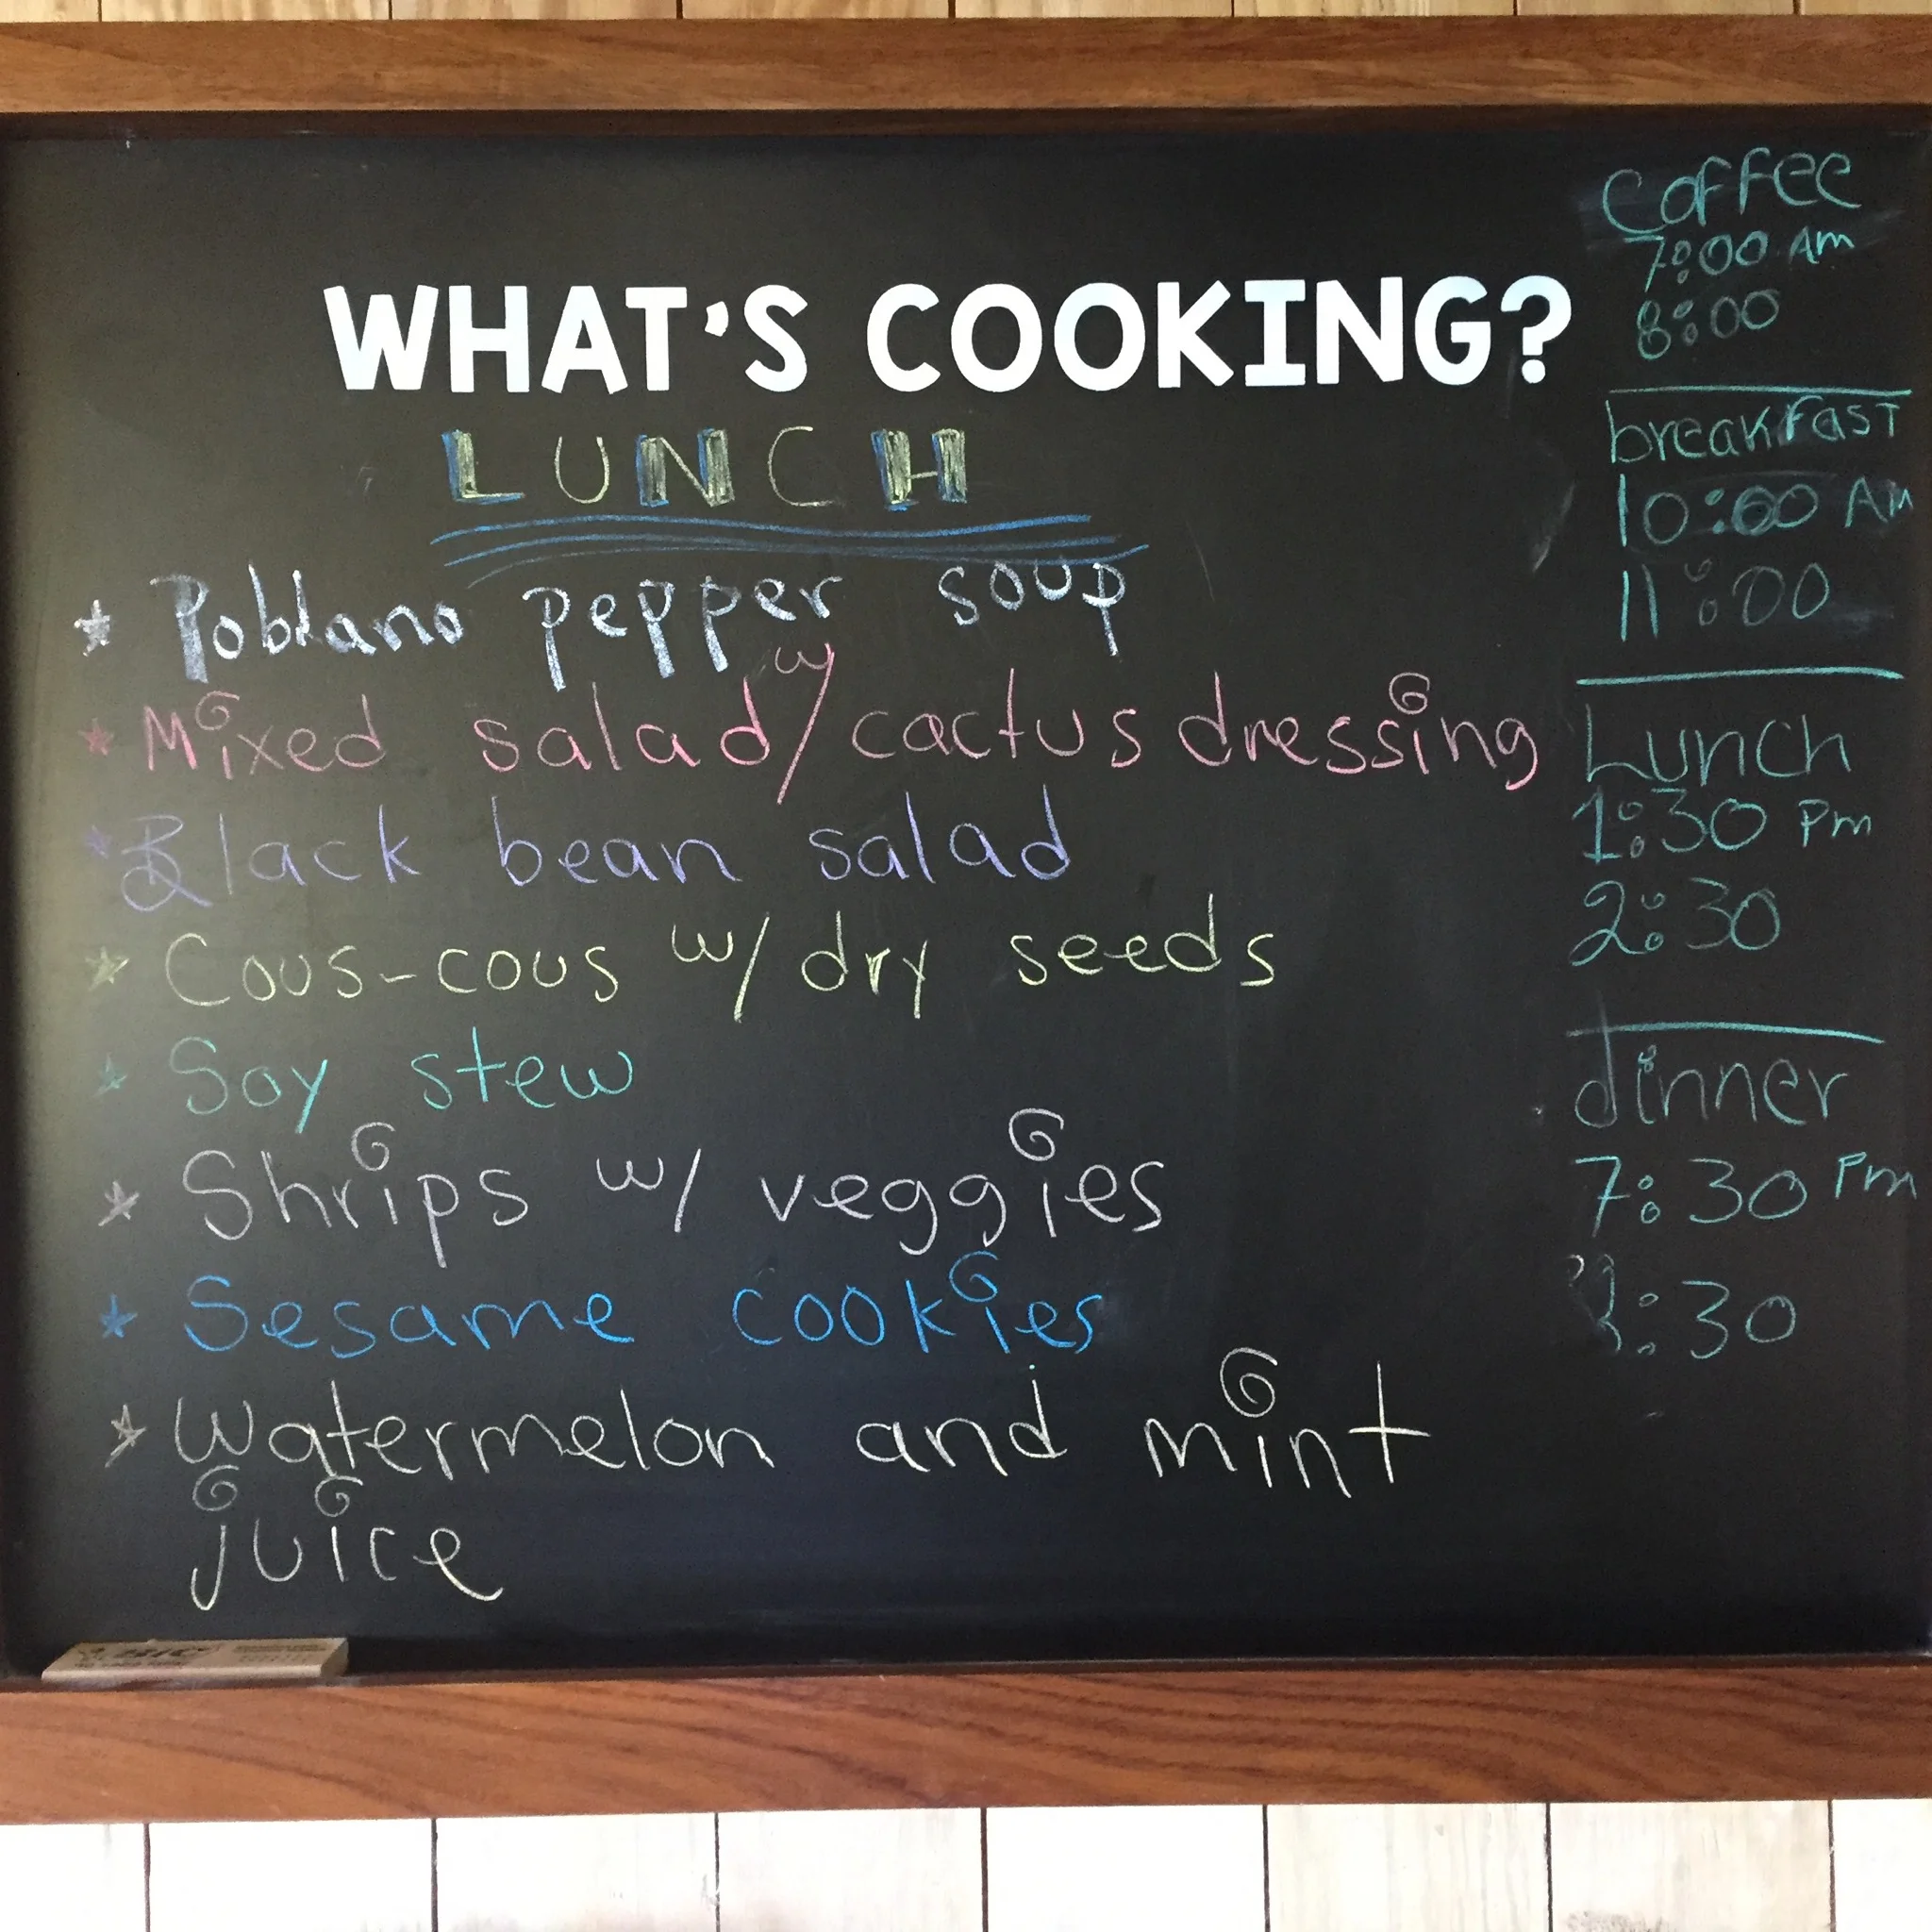 WHAT'S COOKING?
LUNCH
Poblano pepper soup
Mixed salad w/ cactus dressing
Black bean salad
Cous-cous w/ dry seeds
Soy stew
Shrips w/ veggies
Sesame cookies
Watermelon and mint
juice
Coffee
7:00 Am
8:00
breakfast
10:00 AM
11:00
Lunch
1:30 Pm
2:30
dinner
7:30 Pm
:30